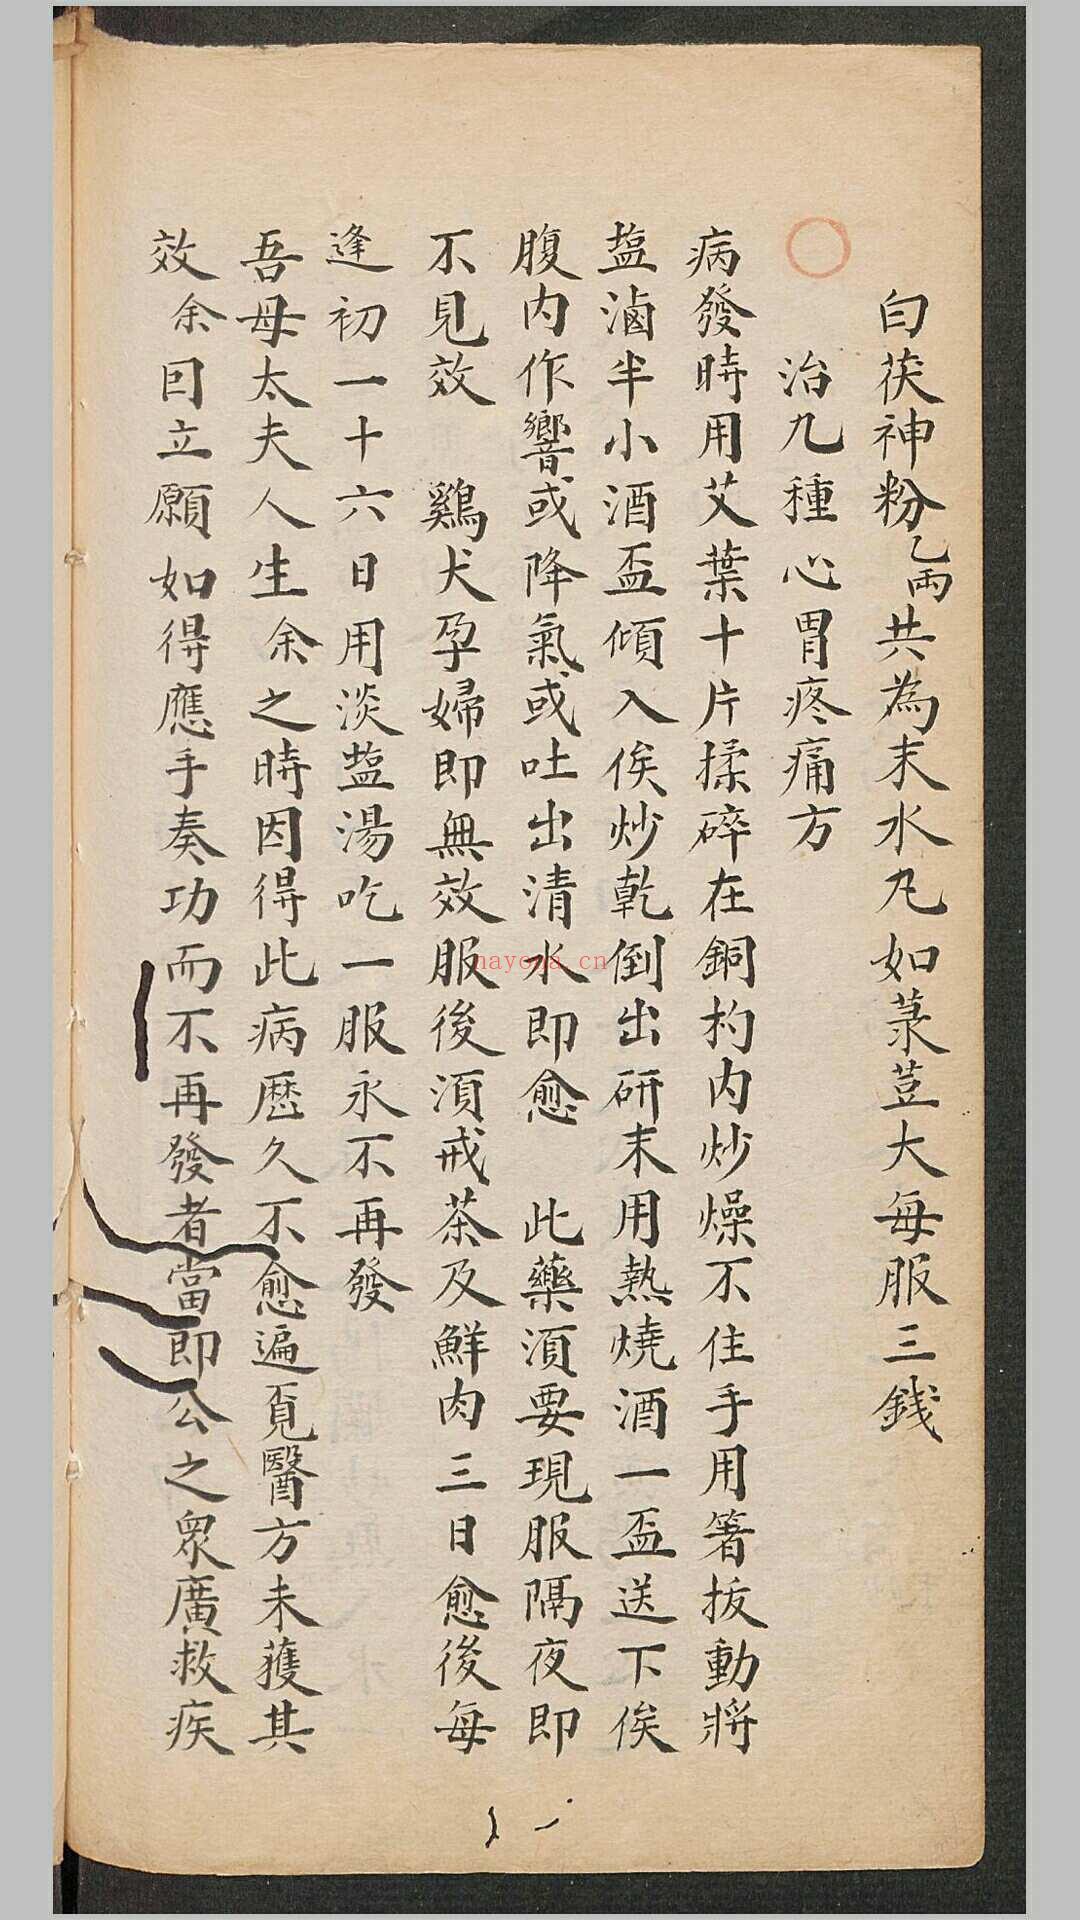 白茯神粉乙両共為末水凡如菉荳大每服三錢
治九種心胃疼痛方
病發時用艾葉十片揉碎在銅杓內炒燥不住手用箸拔動將
塩滷半小酒盃傾入俟炒乾倒出研末用熱燒酒一盃送下俟
腹內作響或降氣或吐出清水即愈 此藥須要現服隔夜即
不見效 鷄犬孕婦即無效服後須戒茶及鮮肉三日愈後每
逢初一十六日用淡塩湯吃一服永不再發
吾母太夫人生余之時因得此病歷久不愈遍覓醫方未獲其
效余囙立願如得應手奏功而不再發者當即公之眾廣救疾
nayona.cn